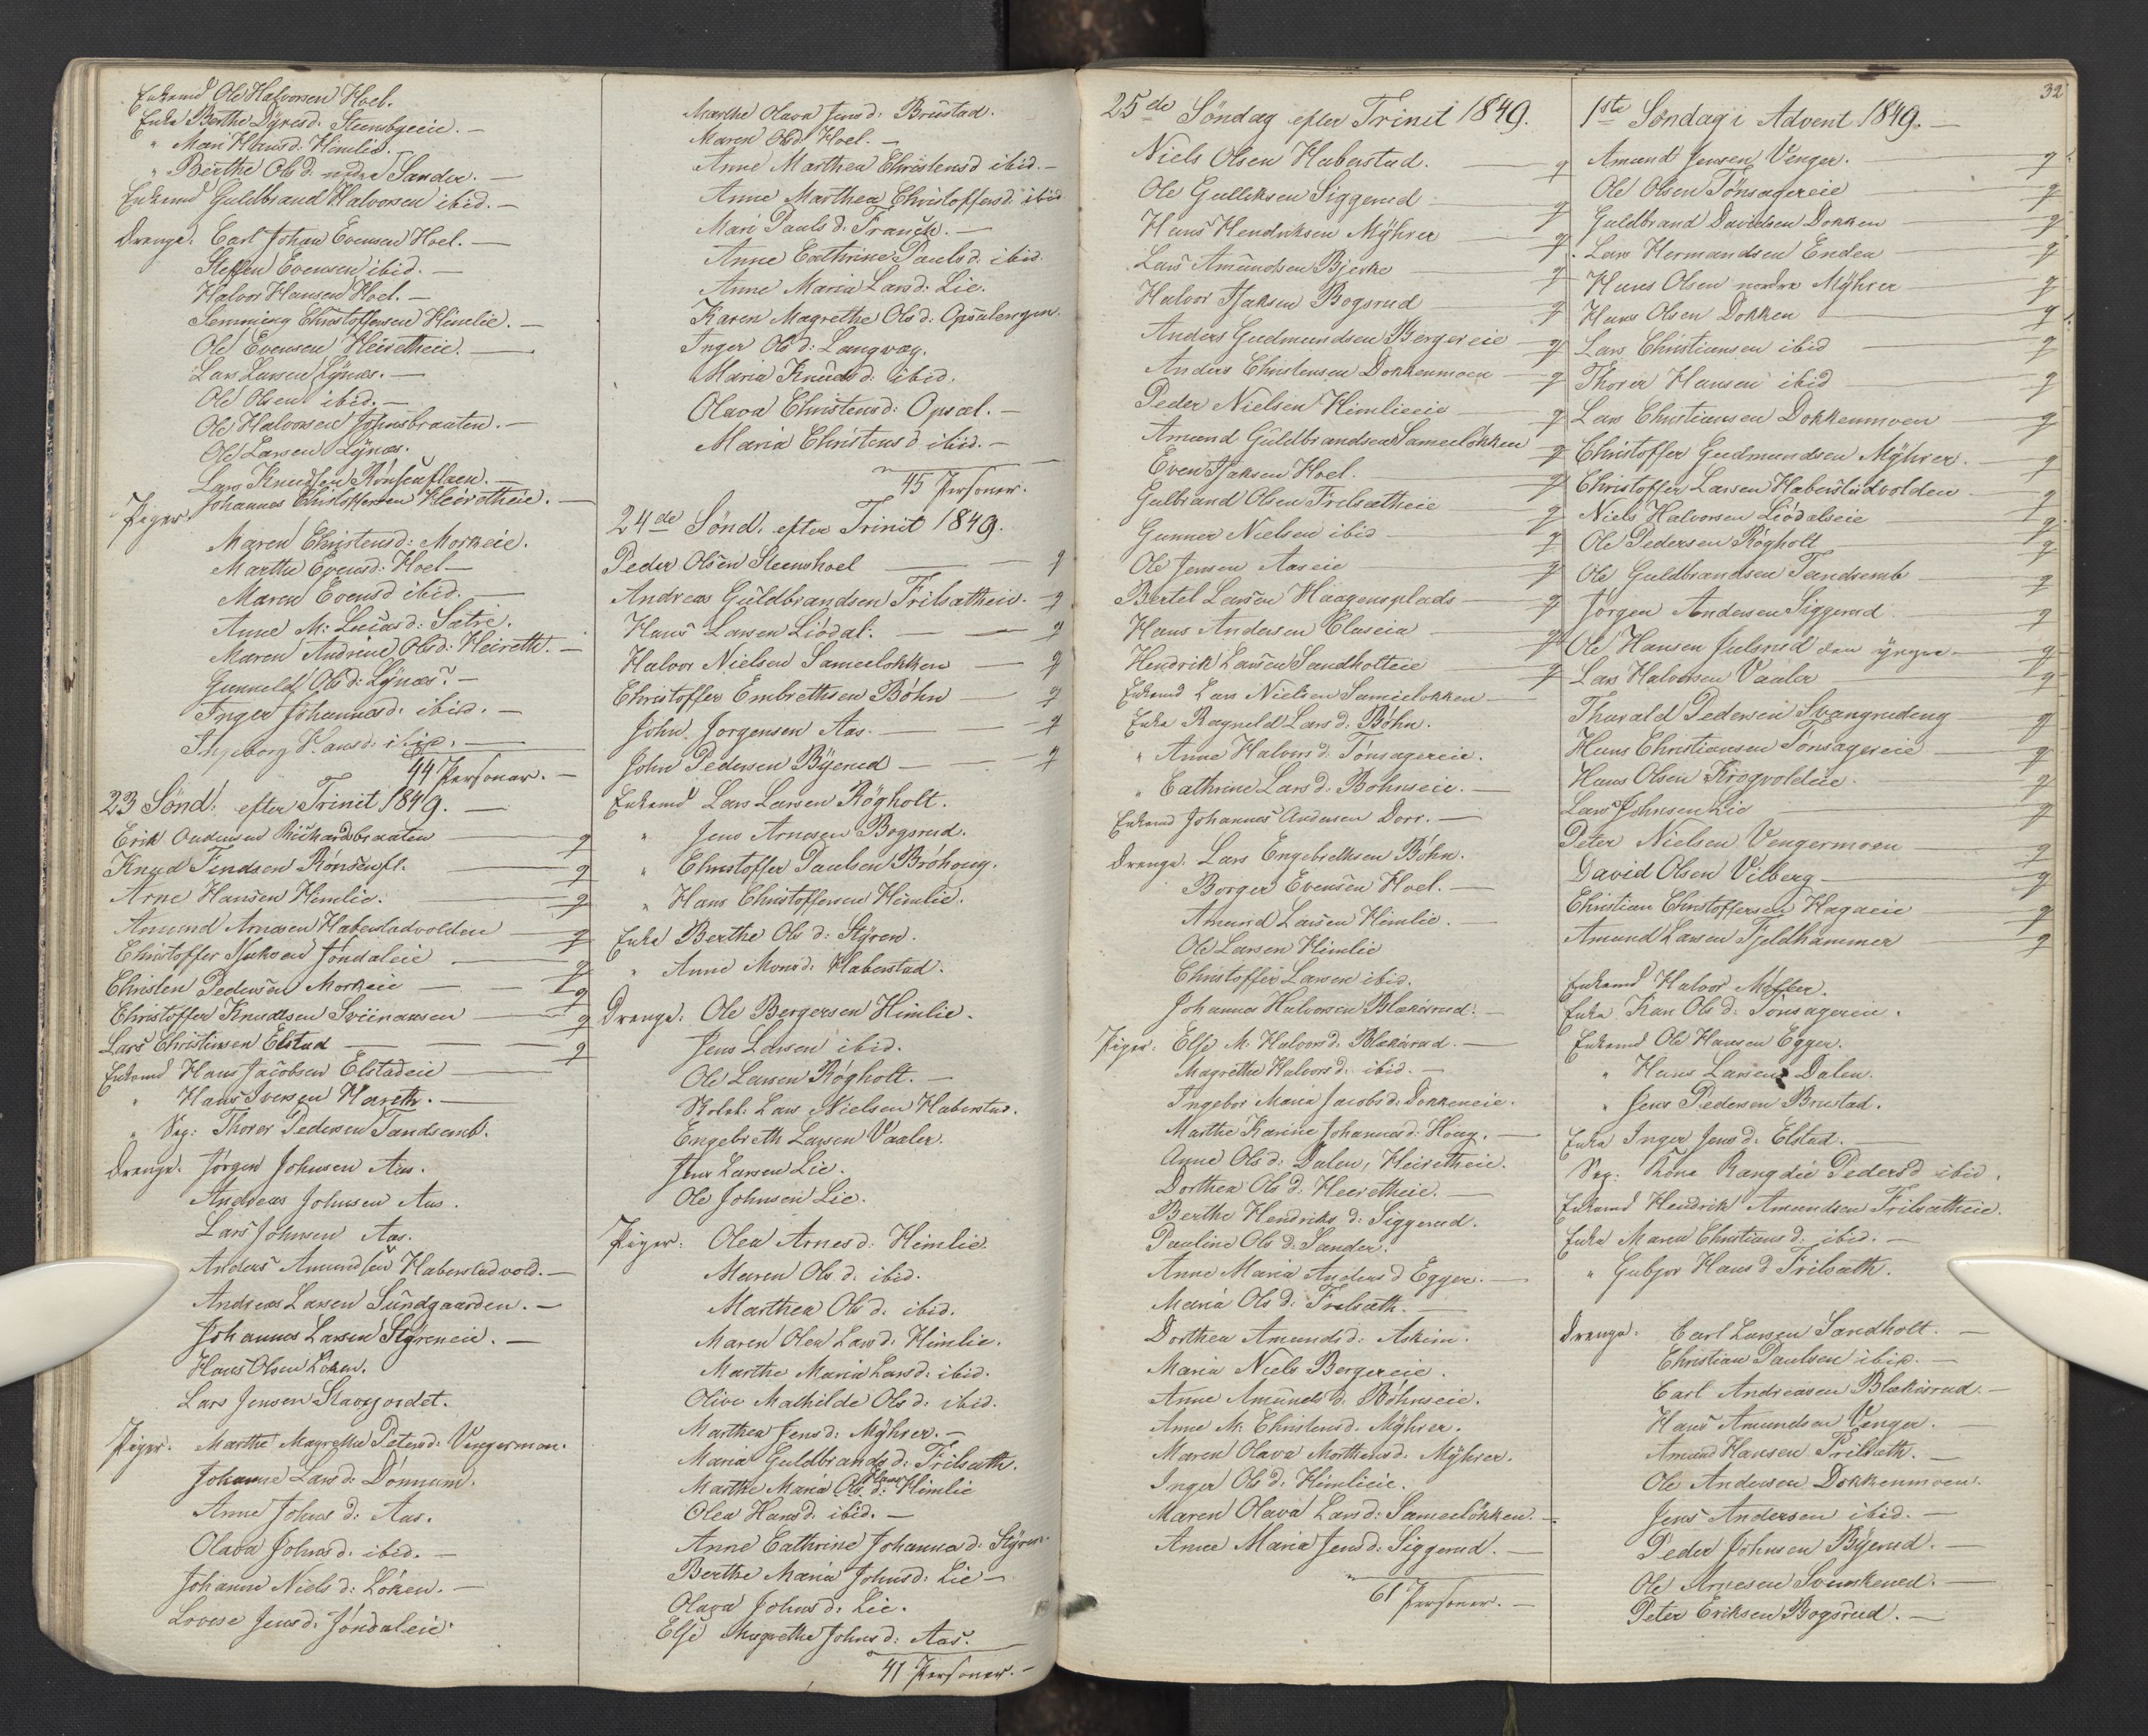 Enkemd Ole Halvorsen Hoel.
Enke Berthe Dyresd: Steensbyeeie. —
" Mari Hansd: Himlie. —
" Berthe Ols d: nedre Sander. —
Enkemd Guldbrand Halvorsen ibid. —
Drenge. Carl Johan Evensen Hoel. —
Steffen Evensen ibid. —
Halvor Hansen Hoel. —
Flemming Christoffersen Himlie. —
Ole Evensen Heiretheie. —
Lars Larsen Lÿnæs. —
Ole Olsen ibid. —
Ole Halvorsen Johnsbraaten. —
Ole Larsen Lÿnæs.
Lars Knudsen
Johannes Christoffersen Heiretheie. —
Piger.
Maren Christensd: Morkeie.
Marthe Evensd: Hoel —
Maren Evensd ibid. —
Anne M: Lucasd: Sætre.
Maren Andrine Olsd: Heireth. —
Gunneld Ols d: Lÿnæs. —
Inger Johannesd: ibid. —
Ingeborg Hansd: ibid. —
44 Personer. —
23 Sönd: efter Trinit 1849. —
Erik Andersen Rickardsbraaten — g
Knud Findsen Rönsenfl. — g
Arne Hansen Himlie. — g
Amund Arnesen Haberstadvolden — g
Christoffer Isaksen Jöndaleie — g
Christen Pedersen Morkeie — g
Christoffer Knudsen Sviinausen — g
Lars Christensen Elstad — g
Enkemd Hans Jacobsen Elstadeie —
" Hans Iversen Hareth. —
" Sep: Thorer Pedersen Tandsemb.
Drenge. Jörgen Johnsen Aas.
Andreas Johnsen Aas.
Lars Johnsen Aas.
Anders Amundsen Haberstadvold. —
Andreas Larsen Sundgaarden. —
Johannes Larsen Styreneie. —
Hans Olsen Löken.
Lars Jensen Stavsjordet.
Piger. Marthe Magrethe Petersd: Vengermoen.
Johanne Lars d: Dönnum.
Anne Johns d: Aas.
Olava Johnsd: ibid. —
Johanne Niels d: Löken. —
Lovise Jensd: Jöndaleie.
Marthe Olava Jensd: Brustad.
Maren Olsd: Hoel. —
Anne Marthea Christensd ibid. —
Anne Marthea Christoffersd: ibid
Mari Pauls d: —
Anne Cathrine Paulsd: ibid.
Anne Maria Larsd: Lie.
Karen Magrethe Ols d: Opsalengen.
Inger Ols d: Langvag.
Maria Knuds d: ibid.
Olava Christensd: Opsal. —
Maria Christensd: ibid. —
45 Personer.
24de Sönd. efter Trinit 1849.
Peder Olsen Steenshoel — g
Andreas Guldbrandsen Frilsætheie. — g
Hans Larsen Liödal: — g
Halvor Nielsen Sameelökken — g
Christoffer Embrethsen Böhn — g
John Jorgensen Aas. — g
John Pedersen Bÿerud — g
Enkemd Lars Larsen Rögholt.
" Jens Arnesen Bogsrud.
" Christoffer Paulsen Bröhoug.
" Hans Christoffersen Himlie.
Enke Berthe Ols d: Stÿren.
" Anne Monsd: Haberstad.
Drenge: Ole Bergersen Himlie.
Jens Larsen ibid.
Ole Larsen Rögholt. —
Skolel: Lars Nielsen Haberstad.
Engebreth Larsen Vaaler.
Jens Larsen Lie.
Ole Johnsen Lie.
Piger: Olea Arnesd: Himlie.
Maren Ols d: ibid.
Marthea Ols d: ibid.
Maren Olea Larsd: Himlie.
Marthe Maria Larsd: ibid.
Olive Mathilde Ols d: ibid.
Marthea Jensd: Mÿhrer. —
Maria Guldbrands d: Frilsæth.
Marthe Maria Hans d: Himlie
Olea Hansd: ibid. —
Anne Cathrine Johannesd: Stÿren.
Berthe Maria Johnsd: Lie —
Olava Johnsd: Lie.
Else Magrethe Johnsd: Aas.
41 Personer. —
32
25de Söndag efter Trinit 1849.
Niels Olsen Haberstad. — g
Ole Gulliksen Siggerud — g
Hans Hendriksen Mÿhrer — g
Lars Amundsen Bjerke — g
Halvor Isaksen Bogsrud — g
Anders Gudmundsen Bergereie — g
Anders Christensen Dokkenmoen — g
Peder Nielsen Himlieeie — g
Amund Guldbrandsen Sameelökken — g
Even Isaksen Hoel. — g
Gulbrand Olsen Frilsætheie — g
Gunner Nielsen ibid — g
Ole Jensen Aaseie — g
Bertel Larsen Haagensplads — g
Hans Andersen — g
Hendrik Larsen Sandholteie — g
Enkemd Lars Nielsen Sameelökken —
Enke Ragneld Lars d: Böhn.
" Anne Halvors d: Tönsagereie.
" Cathrine Lars d: Böhnseie. —
Enkemd Johannes Andersen Dorr. —
Drenge. Lars Engebrethsen Böhn.
Borger Evensen Hoel. —
Amund Larsen Himlie. —
Ole Larsen Himlie
Christoffer Larsen ibid.
Johannes Halvorsen Blækisrud. —
Piger: Else M. Halvorsd: Blækisrud. —
Magrethe Halvorsd: ibid. —
Ingebor Maria Jacobsd: Dokkeneie.
Marthe Karine Johannesd: Houg. —
Anne Ols d: Dalen, Heiretheie.
Dorthea Ols d: Heiretheie. —
Berthe Hendriks d: Siggerud.
Pauline Ols d: Sander.
Anne Maria Anders d Egger. —
Maria Ols d: Frilsæth. —
Dorthea Amunds d: Askim.
Maria Niels Bergereie.
Anne Amunds d: Böhnseie.
Anne M: Christensd. Mÿhrer.
Maren Olava Morthensd: Mÿhrer.
Inger Ols d: Himlieie.
Maren Olava Lars d: Sameelökken. —
Anne Maria Jensd: Siggerud. —
61 Personer. —
1ste Söndag i Advent 1849. —
Amund Jensen Venger. — g
Ole Olsen Tönsagereie — g
Guldbrand Davidsen Dokken — g
Lars Hermandsen Enden — g
Hans Olsen nordre Mÿhrer — g
Hans Olsen Dokken — g
Lars Christiansen ibid — g
Thorer Hansen ibid — g
Lars Christiansen Dokkenmoen — g
Christoffer Gudmundsen Mÿhrer. — g
Christoffer Larsen Haberstadvolden — g
Niels Halvorsen Liödalseie — g
Ole Pedersen Rögholt — g
Ole Guldbrandsen Tandsemb — g
Jörgen Andersen Siggerud — g
Ole Hansen Julsrud den ÿngre — g
Lars Halvorsen Vaaler — g
Thorald Pedersen Svangrudeng — g
Hans Christiansen Tönsagereie — g
Hans Olsen Krogvoldeie. — g
Lars Johnsen Lie — g
Peter Nielsen Vengermoen — g
David Olsen Vilberg — g
Christian Christoffersen Hagaeie — g
Amund Larsen Fjeldhammer — g
Enkemd Halvor
Enke Kari Ols d: Tönsagereie.
Enkemd Ole Hansen Egger.
" Hans Larsen Dalen.
" Jens Pedersen Brustad.
Enke Inger Jens d: Elstad. —
Sep: Kone Rangdie Pedersd ibid.
Enkemd Hendrik Amundsen Frilsætheie.
Enke Maren Christians d: ibid. —
" Gubjor Hans d Frilsæth.
Drenge: Carl Larsen Sandholt. —
Christian Paulsen ibid. —
Carl Andreasen Blækisrud. —
Hans Amundsen Venger. —
Amund Hansen Frilsæth. —
Ole Andersen Dokkenmoen.
Jens Andersen ibid. —
Peder Johnsen Bÿerud. —
Ole Arnesen —
Peter Eriksen Bogsrud. —